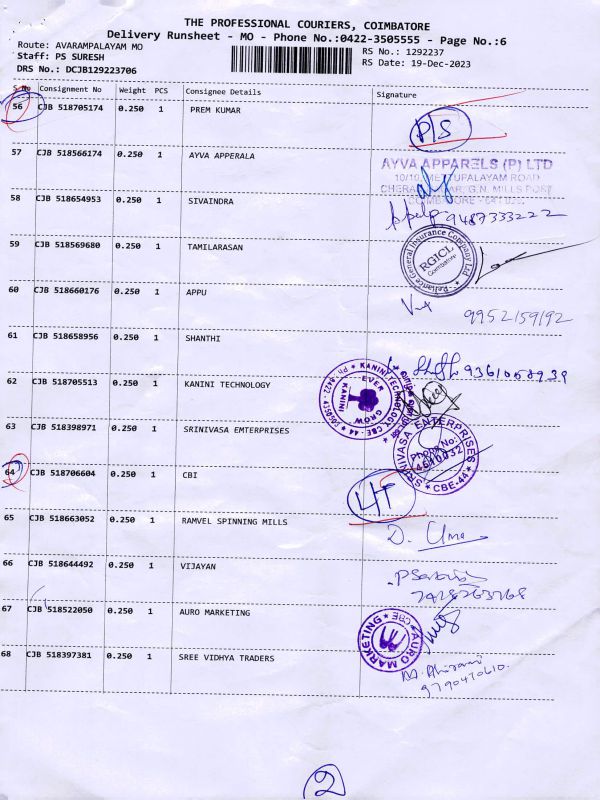 THE PROFESSIONAL COURIERS, COIMBATORE
Delivery Runsheet - MO - Phone No.:0422-3505555 - Page No.:6
Route: AVARAMPALAYAM MO
RS No.: 1292237
Staff: PS SURESH
RS Date: 19-Dec-2023
DRS No.: DCJB129223706
S.No Consignment No Weight PCS Consignee Details Signature
56 CJB 518705174 0.250 1 PREM KUMAR
P/S
57 CJB 518566174 0.250 1 AYVA APPERALA
AYVA APPARELS (P) LTD
10/10, METTUPALAYAM ROAD
G.N. MILLS POST
58 CJB 518654953 0.250 1 SIVAINDRA
9487333222
59 CJB 518569680 0.250 1 TAMILARASAN
Reliance General Insurance Company Ltd
RGICL
Coimbatore
60 CJB 518660176 0.250 1 APPU
9952159192
61 CJB 518658956 0.250 1 SHANTHI
9361058939
62 CJB 518705513 0.250 1 KANINI TECHNOLOGY
KANINI TECHNOLOGY
EVER
GROW
KANINI
63 CJB 518398971 0.250 1 SRINIVASA EMTERPRISES
SRINIVASA ENTERPRISES
Phone No:
CBE-44
64 CJB 518706604 0.250 1 CBI
65 CJB 518663052 0.250 1 RAMVEL SPINNING MILLS
D. Uma
66 CJB 518644492 0.250 1 VIJAYAN
67 CJB 518522050 0.250 1 AURO MARKETING
AURO MARKETING
CBE
68 CJB 518397381 0.250 1 SREE VIDHYA TRADERS
9790470610.
2